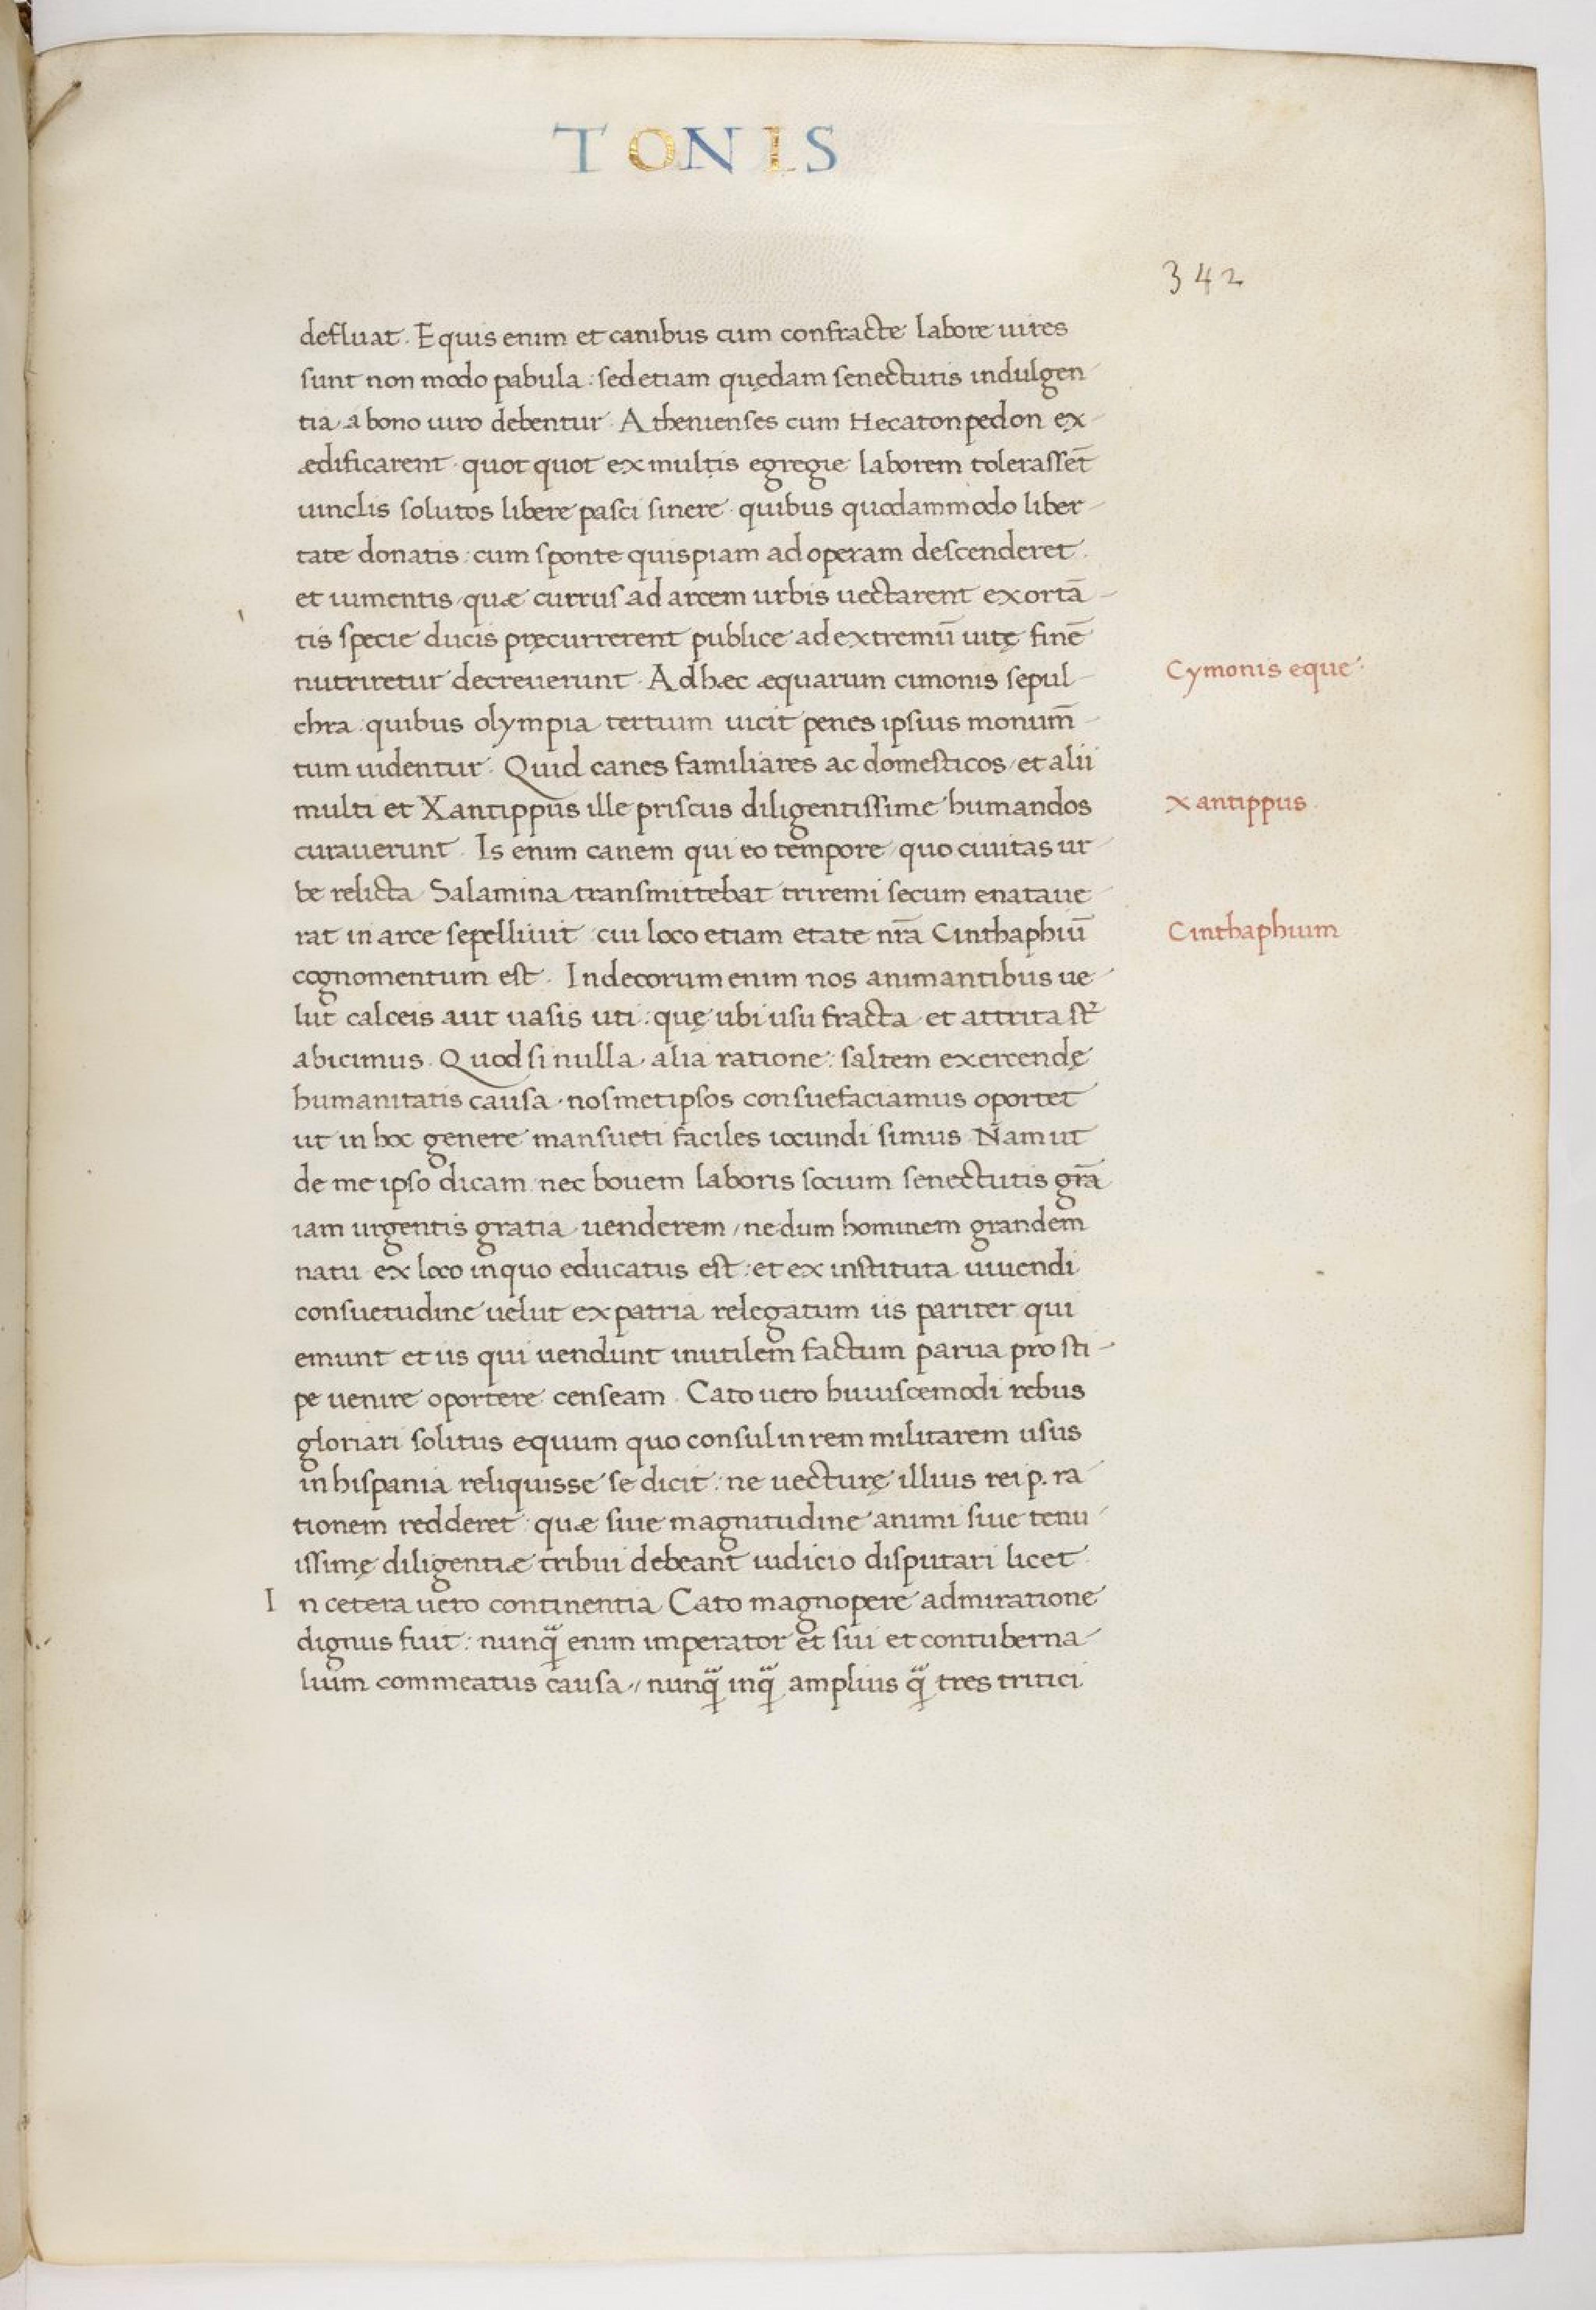 TONIS
342
defluat. Equis enim et canibus cum confracte labore uires
sunt non modo pabula: sed etiam quędam senectutis indulgen-
tia a bono uiro debentur. Athenienses cum Hecatonpedon ex-
ædificarent quot quot ex multis egregie laborem tolerassēt
uinclis solutos libere pasci sinere quibus quodammodo liber-
tate donatis: cum sponte quispiam ad operam descenderet
et iumentis quæ currus ad arcem urbis uectarent exortā-
tis specie ducis pręcurrerent publice ad extremū uitę finē
nutriretur decreuerunt. Ad hæc æquarum cimonis sepul-
chra quibus olympia tertium uicit penes ipsius monum̄-
tum uidentur. Quid canes familiares ac domesticos et alii
Cymonis eque
multi et Xantippus ille priscus diligentissime humandos
Xantippus
curauerunt. Is enim canem qui eo tempore quo ciuitas ur-
be relicta Salamina transmittebat triremi secum enataue-
rat in arce sepelliuit cui loco etiam etate nr̄a Cinthaphiū
Cinthaphium
cognomentum est. Indecorum enim nos animantibus ue-
lut calceis aut uasis uti: quę ubi usu fracta et attrita st̄
abicimus. Quod si nulla alia ratione: saltem exercendę
humanitatis causa nosmetipsos consuefaciamus oportet
ut in hoc genere mansueti faciles iocundi simus. Nam ut
de me ipso dicam nec bouem laboris socium senectutis gr̄a
iam urgentis gratia uenderem / nedum hominem grandem
natu ex loco in quo educatus est: et ex instituta uiuendi
consuetudine uelut ex patria relegatum iis pariter qui
emunt et iis qui uendunt inutilem factum parua pro sti-
pe uenire oportere censeam. Cato uero huiuscemodi rebus
gloriari solitus equum quo consul in rem militarem usus
in hispania reliquisse se dicit: ne uecturę illius rei p. ra-
tionem redderet quæ siue magnitudine animi siue tenu-
issimę diligentiæ tribui debeant iudicio disputari licet
In cetera uero continentia Cato magnopere admiratione
dignus fuit: nunq̄ enim imperator et sui et contuberna-
lium commeatus causa // nunq̄ inq̄ amplius q̄ tres tritici